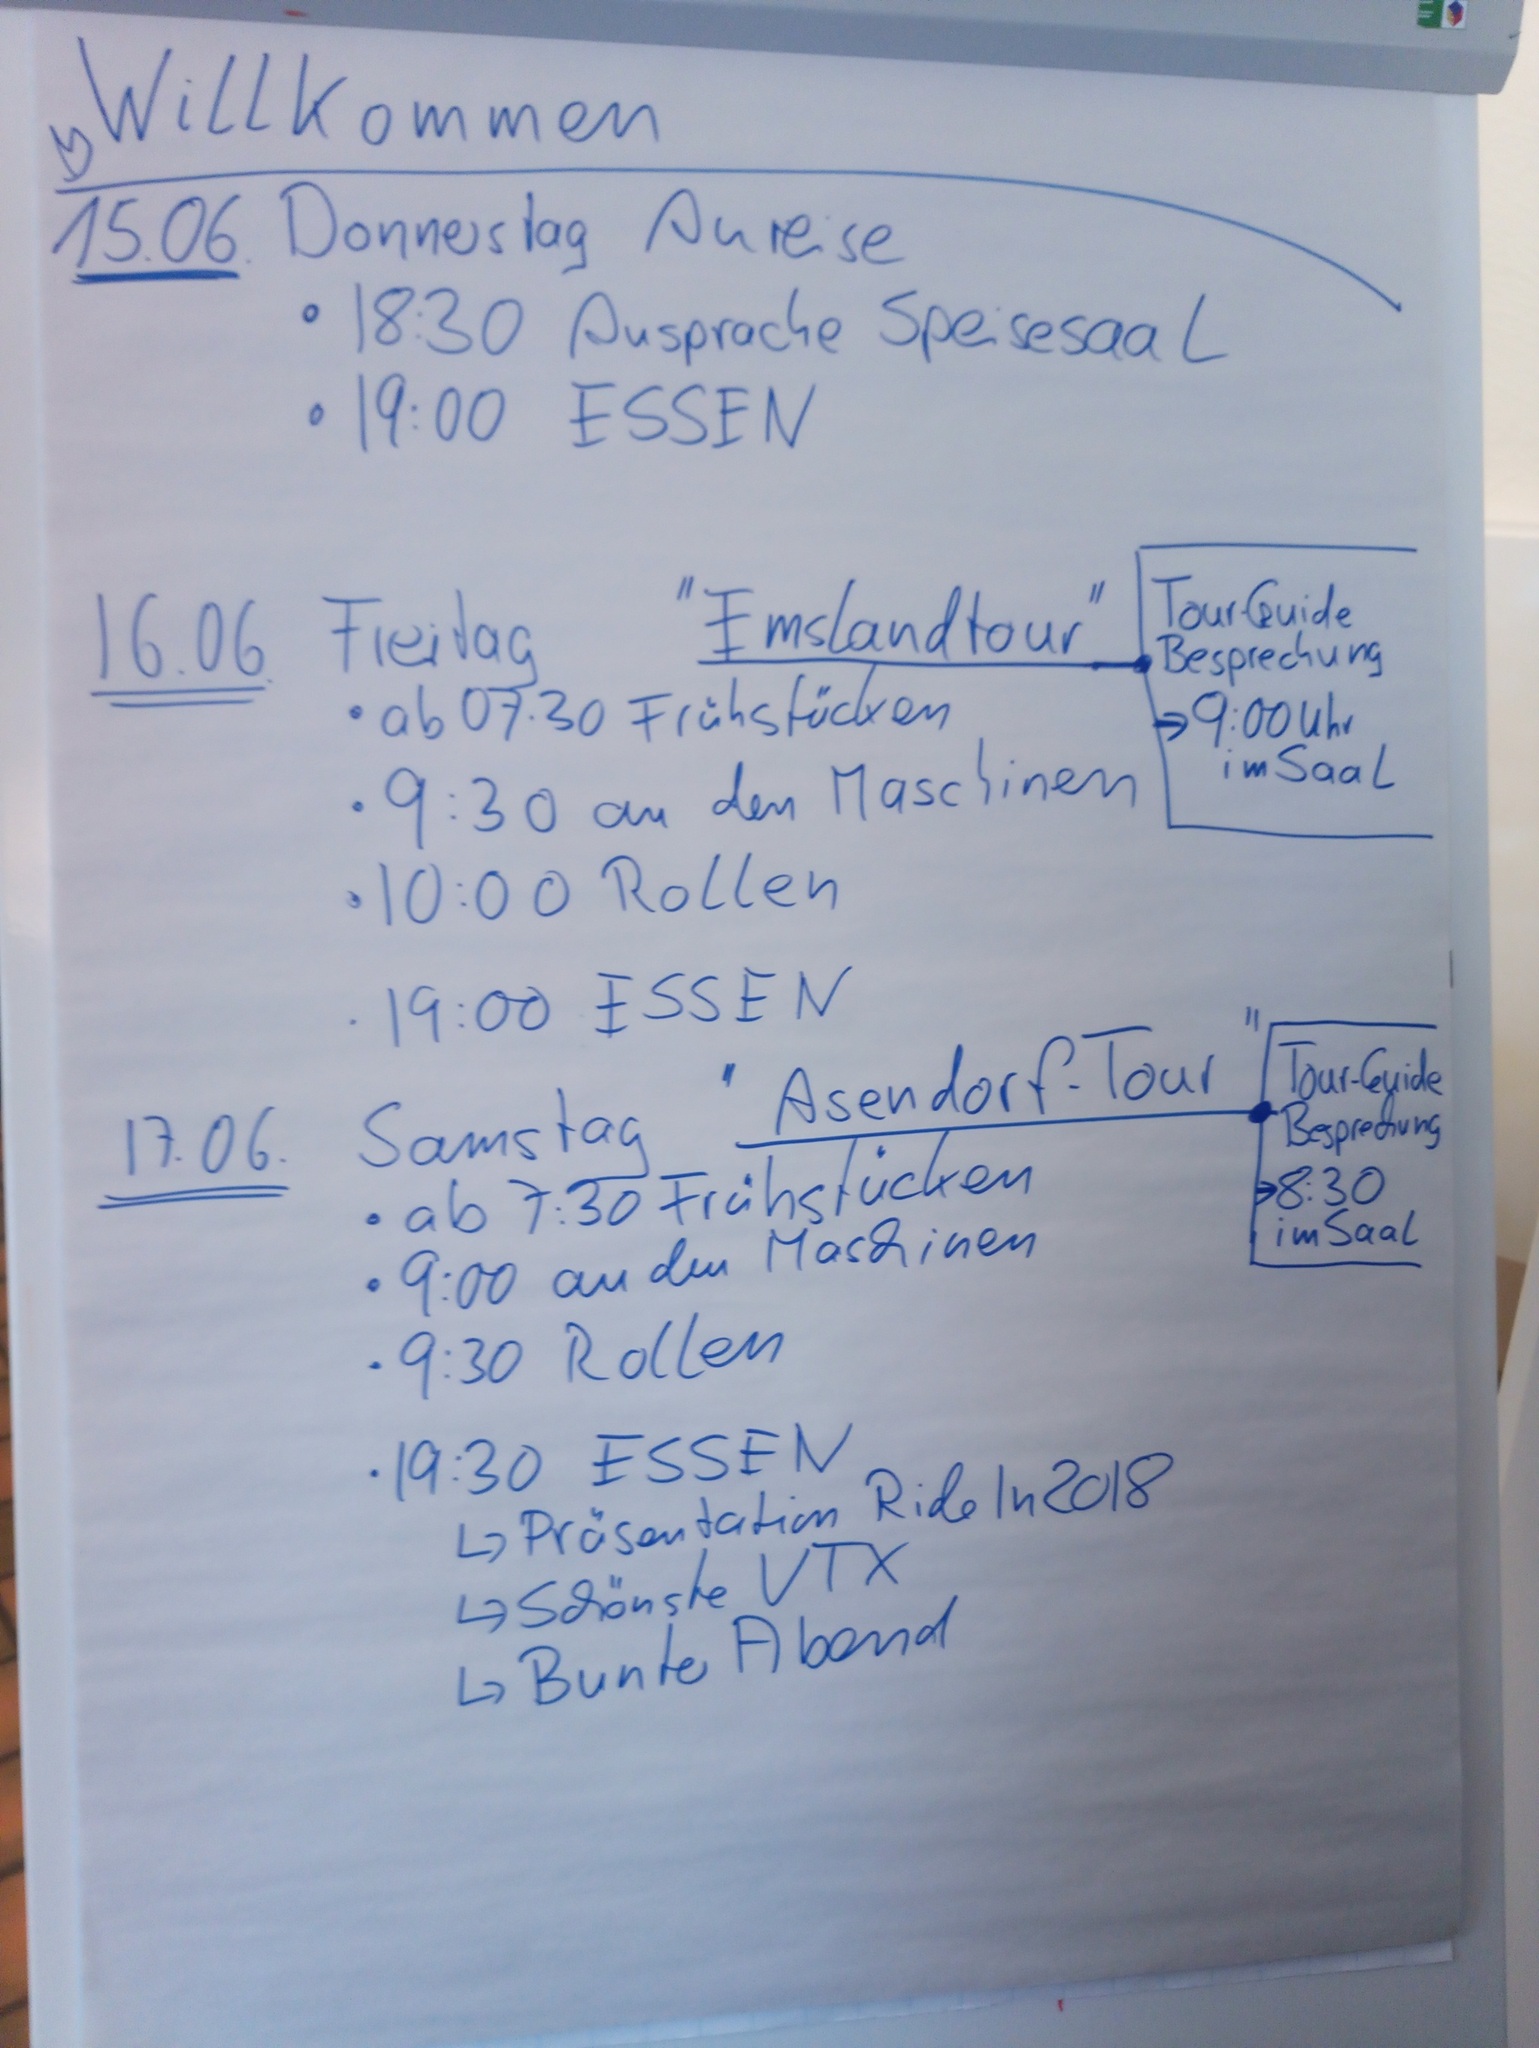 Willkommen
15.06. Donnerstag Anreise
• 18:30 Ansprache Speisesaal
• 19:00 ESSEN
16.06. Freitag "Emslandtour"
Tour-Guide
Besprechung
→ 9:00 Uhr
im Saal
• ab 07.30 Frühstücken
• 9:30 an den Maschinen
• 10:00 Rollen
• 19:00 ESSEN
17.06. Samstag "Asendorf-Tour"
Tour-Guide
Besprechung
→ 8:30
im Saal
• ab 7:30 Frühstücken
• 9:00 an den Maschinen
• 9:30 Rollen
• 19:30 ESSEN
↳ Präsentation Ride In 2018
↳ Schönste VTX
↳ Bunter Abend